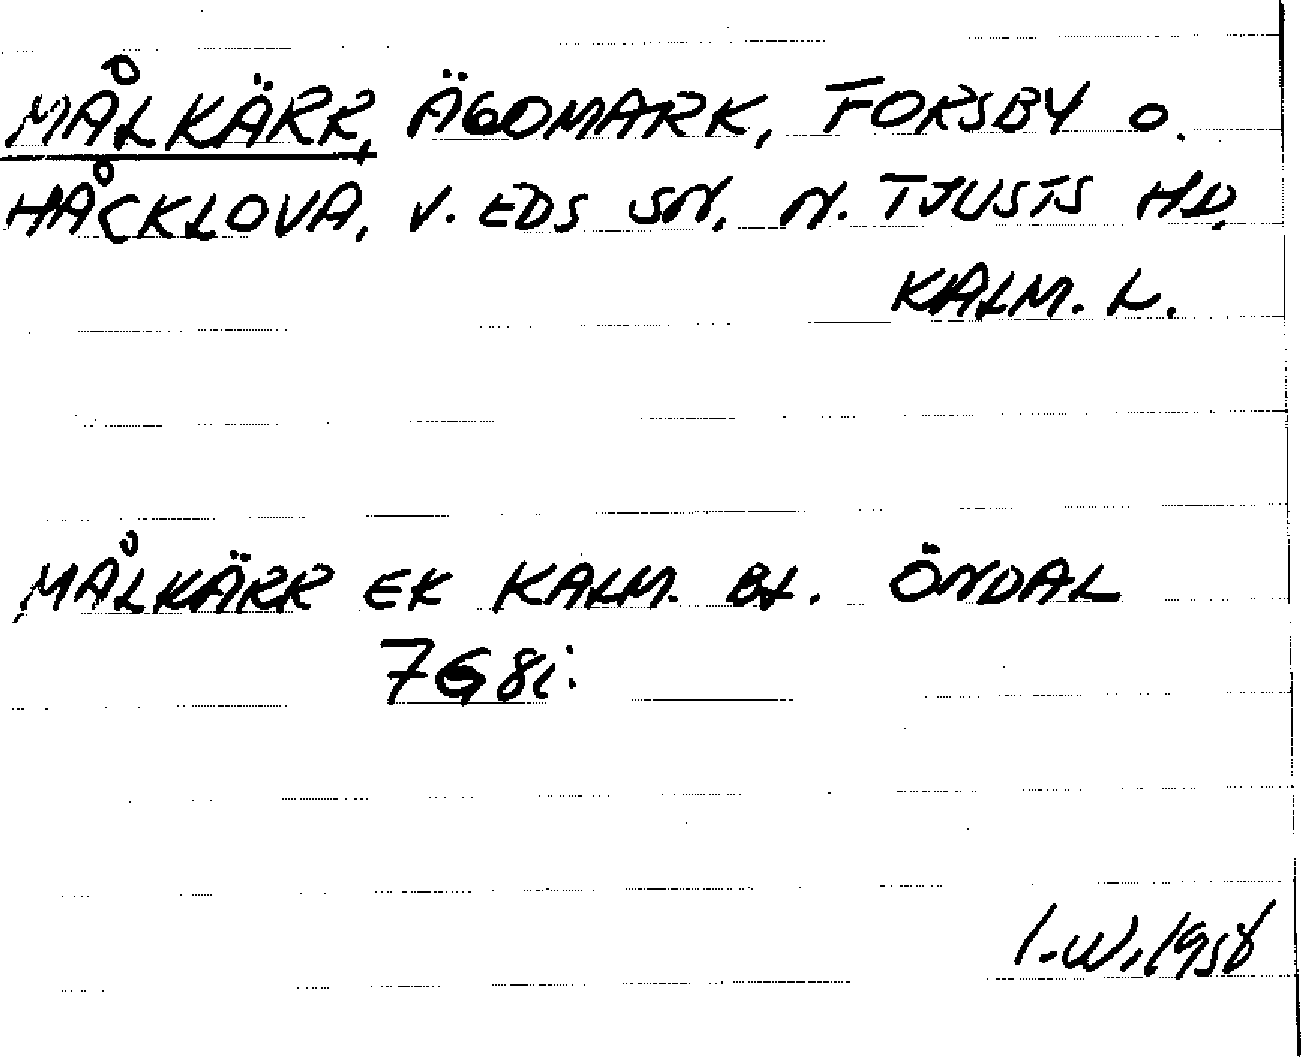 MÅLKÄRR, ÄGOMARK, FORSBY O.
HÅCKLOVA, V. EDS SN, N. TJUSTS HD,
KALM. L.
MÅLKÄRR EK KALM. BL. ÖNDAL
7G8i:
I.W, 1958